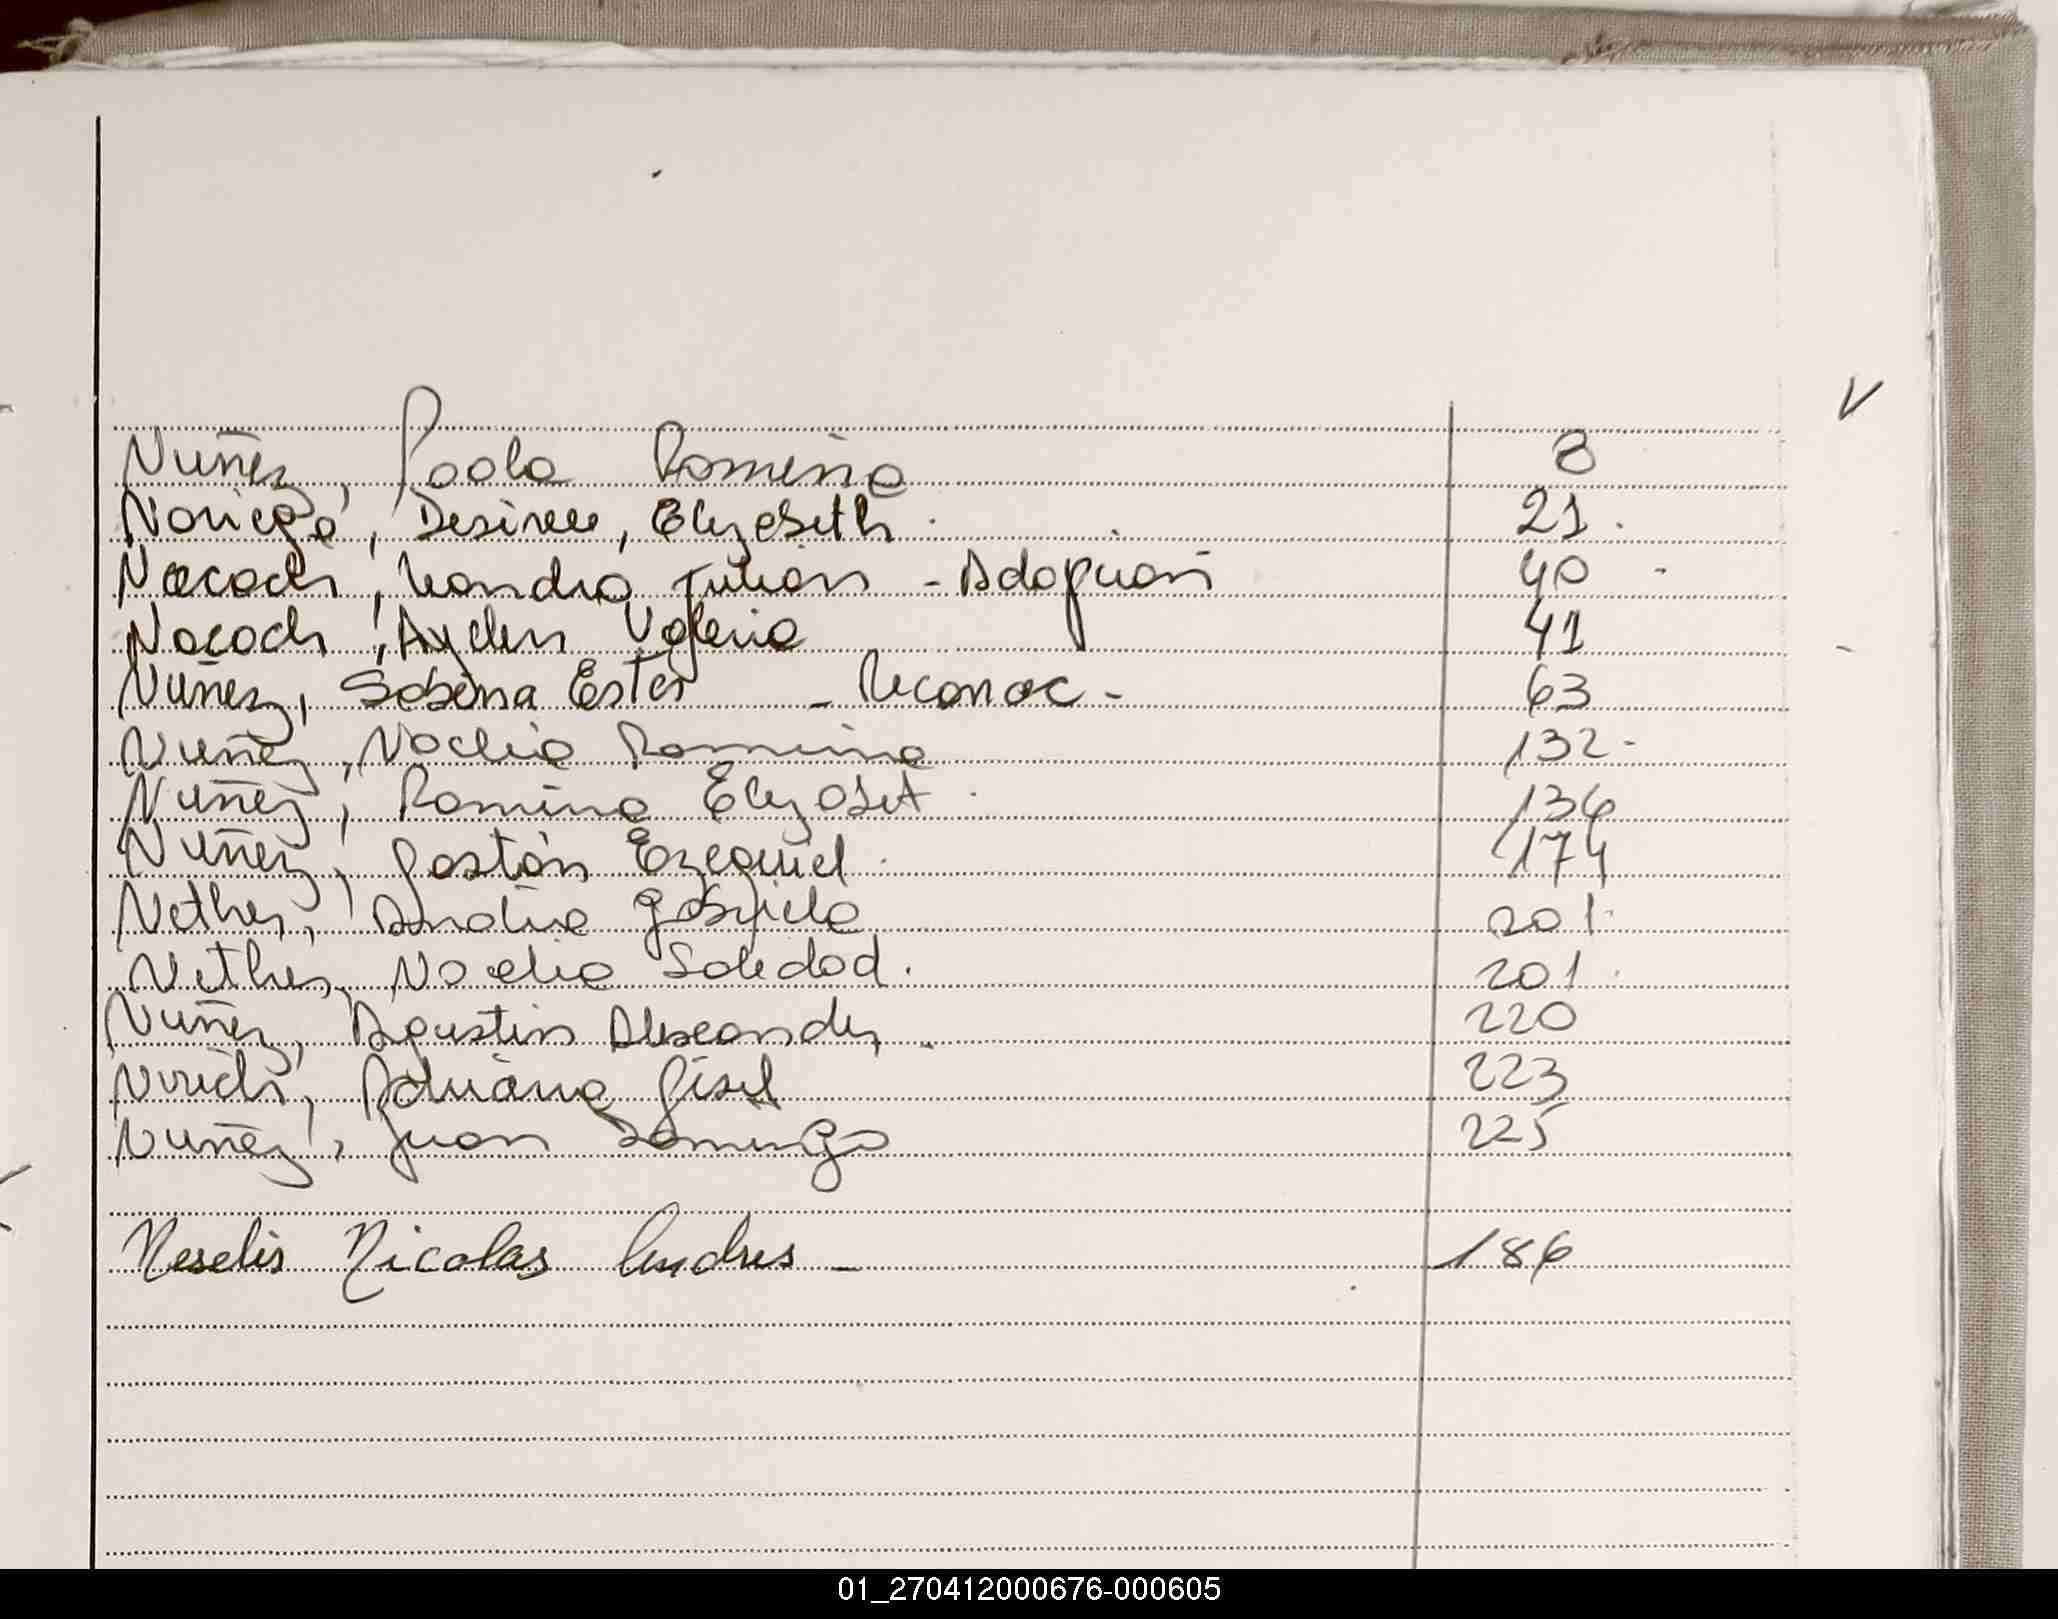 V
Nuñez, Paola Romina 8
Noriega, Desiree, Elizabeth. 21.
Nacach, Leandro Julian - Adopción 40 -
Nacach, Aylen Valeria 41
Nuñez, Sabina Ester - Reconoc - 63
Nuñez, Noelia Romina 132-
Nuñez, Romina Elizabet 136
Nuñez, Gastón Ezequiel. 174
Nether, Analia Gabriela 201.
Nether, Noelia Soledad. 201.
Nuñez, Agustin Alexander. 220
Adriana Gisel 223
Nuñez, Juan Domingo 225
Neselis Nicolas Andres - 186
01_270412000676-000605